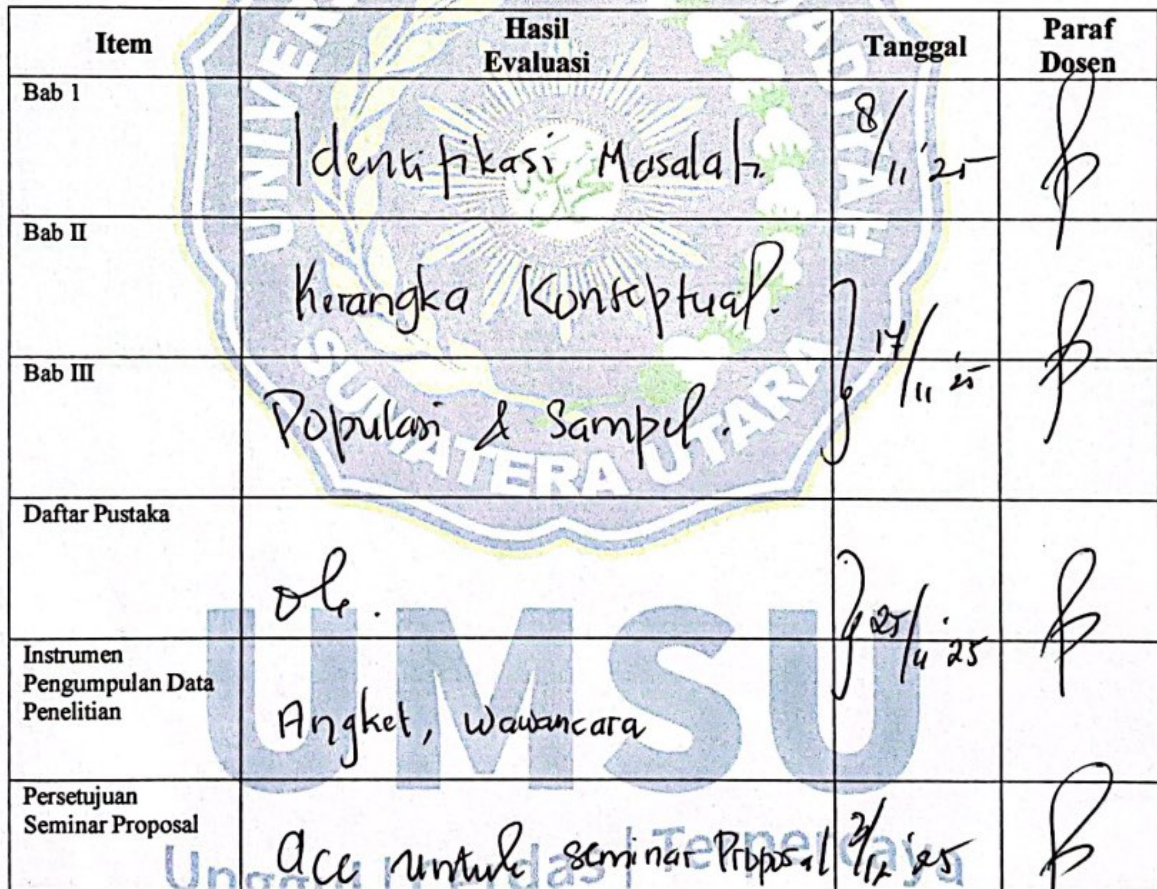 Item
Hasil
Evaluasi
Tanggal
Paraf
Dosen
Bab 1
Identifikasi Masalah.
8/11 '25
Bab II
Kerangka Konseptual.
17/11 '25
Bab III
Populasi & Sampel.
Daftar Pustaka
Ok.
25/11 '25
Instrumen
Pengumpulan Data
Penelitian
Angket, Wawancara
Persetujuan
Seminar Proposal
acc untuk seminar Proposal
/12 '25
SUMATERA UTARA
UMSU
Unggul | Cerdas | Terpercaya